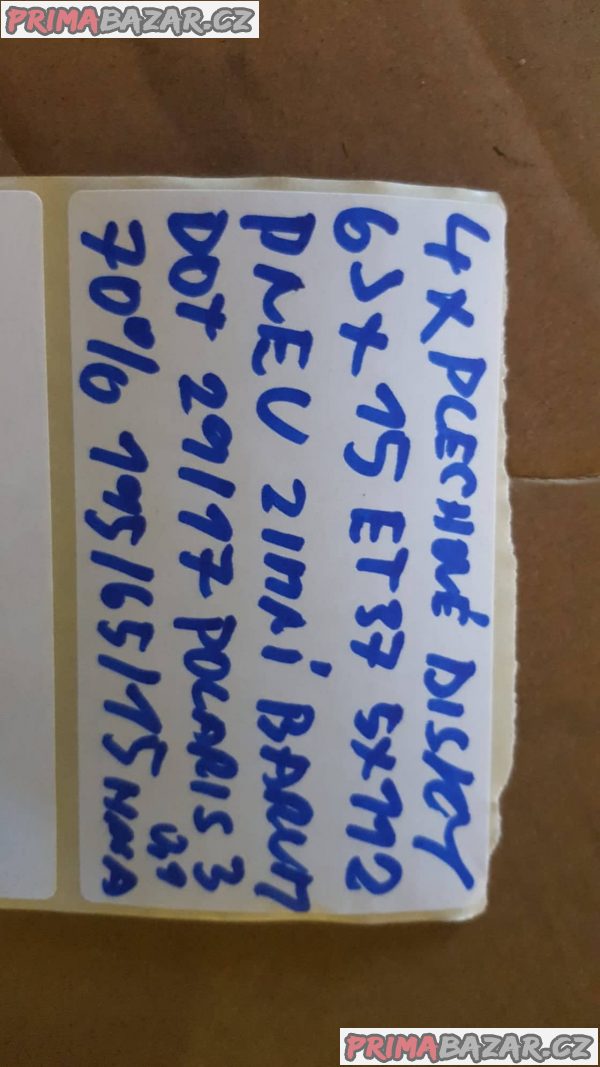 PRIMABAZAR.CZ
4X PLECHOVÉ DISKY
6J X 15 ET 37 5X112
PNEU ZIMNÍ BARUM
DOT 29/17 POLARIS 3
70% 195/65/15
PRIMABAZAR.CZ